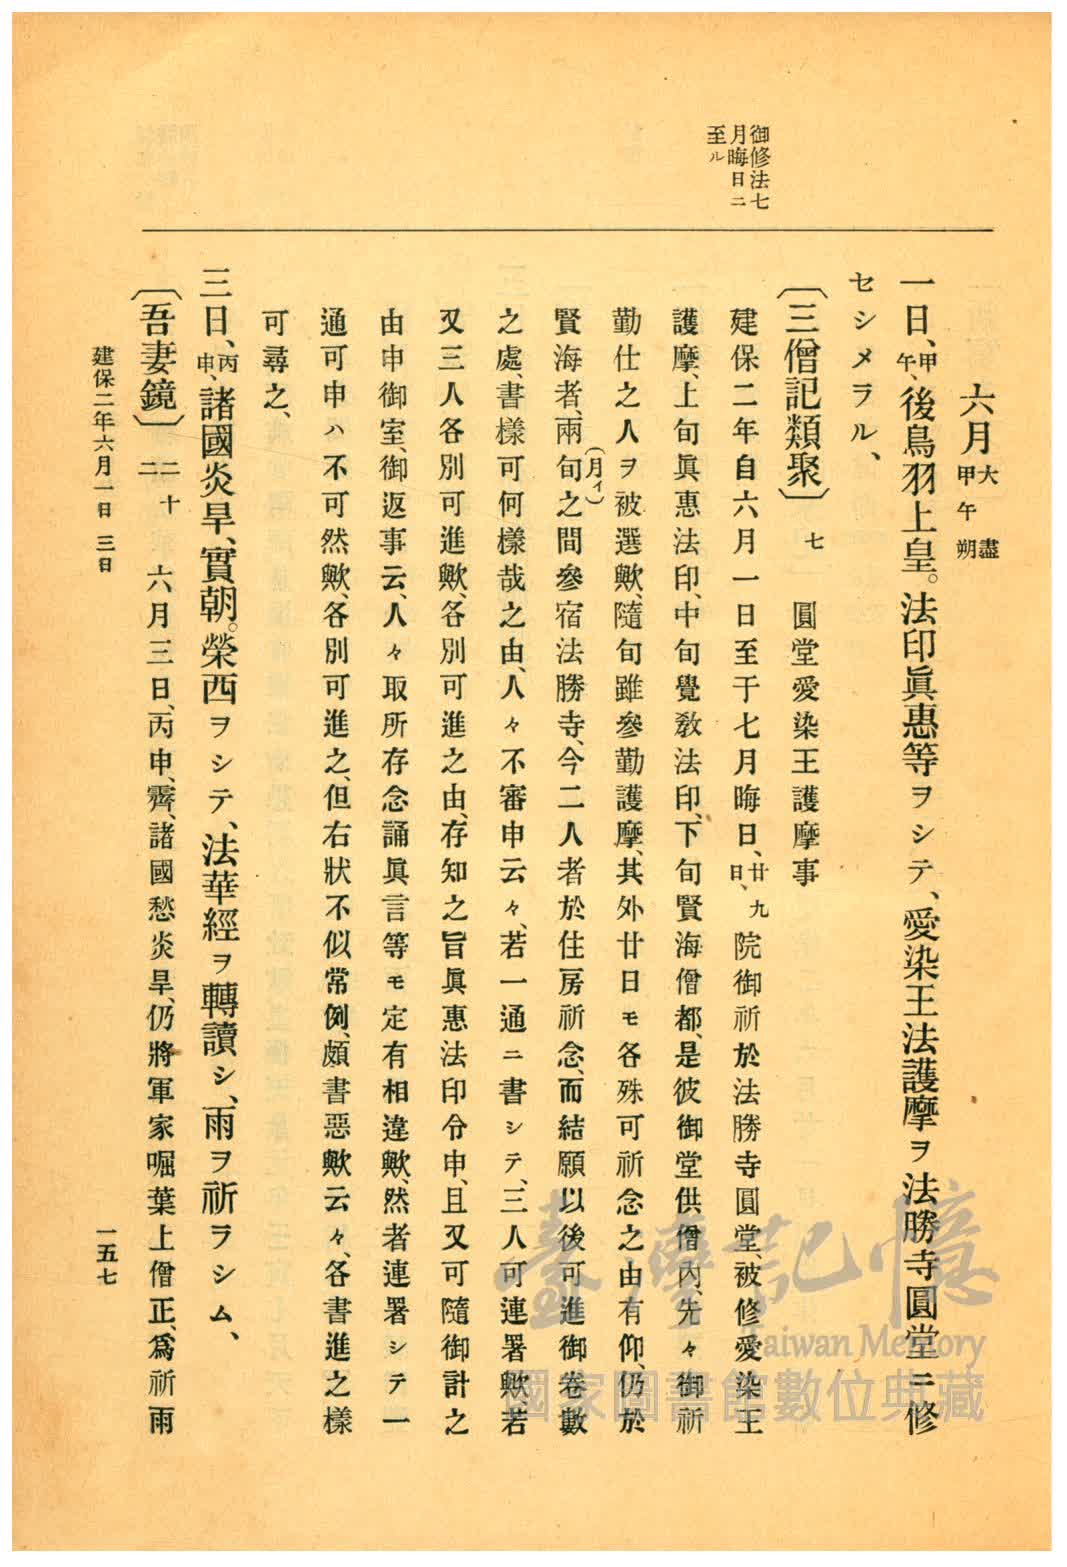 御修法七
月晦日ニ
至ル
六月大盡甲午朔
一日、甲午、後鳥羽上皇。法印眞惠等ヲシテ、愛染王法護摩ヲ法勝寺圓堂ニ修
セシメラル、
〔三僧記類聚〕七 圓堂愛染王護摩事
建保二年自六月一日至于七月晦日、廿九日、院御祈於法勝寺圓堂、被修愛染王
護摩、上旬眞惠法印、中旬覺敎法印、下旬賢海僧都、是彼御堂供僧內、先々御祈
勤仕之人ヲ被選歟、隨旬雖參勤護摩、其外廿日モ各殊可祈念之由有仰、仍於
賢海者、兩旬(月イ)之間參宿法勝寺、今二人者於住房祈念、而結願以後可進御卷數
之處、書樣可何樣哉之由、人々不審申云々、若一通ニ書シテ、三人可連署歟、若
又三人各別可進歟、各別可進之由、存知之旨眞惠法印令申、且又可隨御計之
由申御室、御返事云、人々取所存念誦眞言等モ定有相違歟、然者連署シテ一
通可申ハ不可然歟、各別可進之、但右狀不似常例、頗書惡歟云々、各書進之樣
可尋之、
三日、丙申、諸國炎旱、實朝。榮西ヲシテ、法華經ヲ轉讀シ、雨ヲ祈ラシム、
〔吾妻鏡〕二十二 六月三日、丙申、霽、諸國愁炎旱、仍將軍家啒葉上僧正、爲祈雨
建保二年六月一日 三日
一五七
臺灣記憶
Taiwan Memory
國家圖書館數位典藏